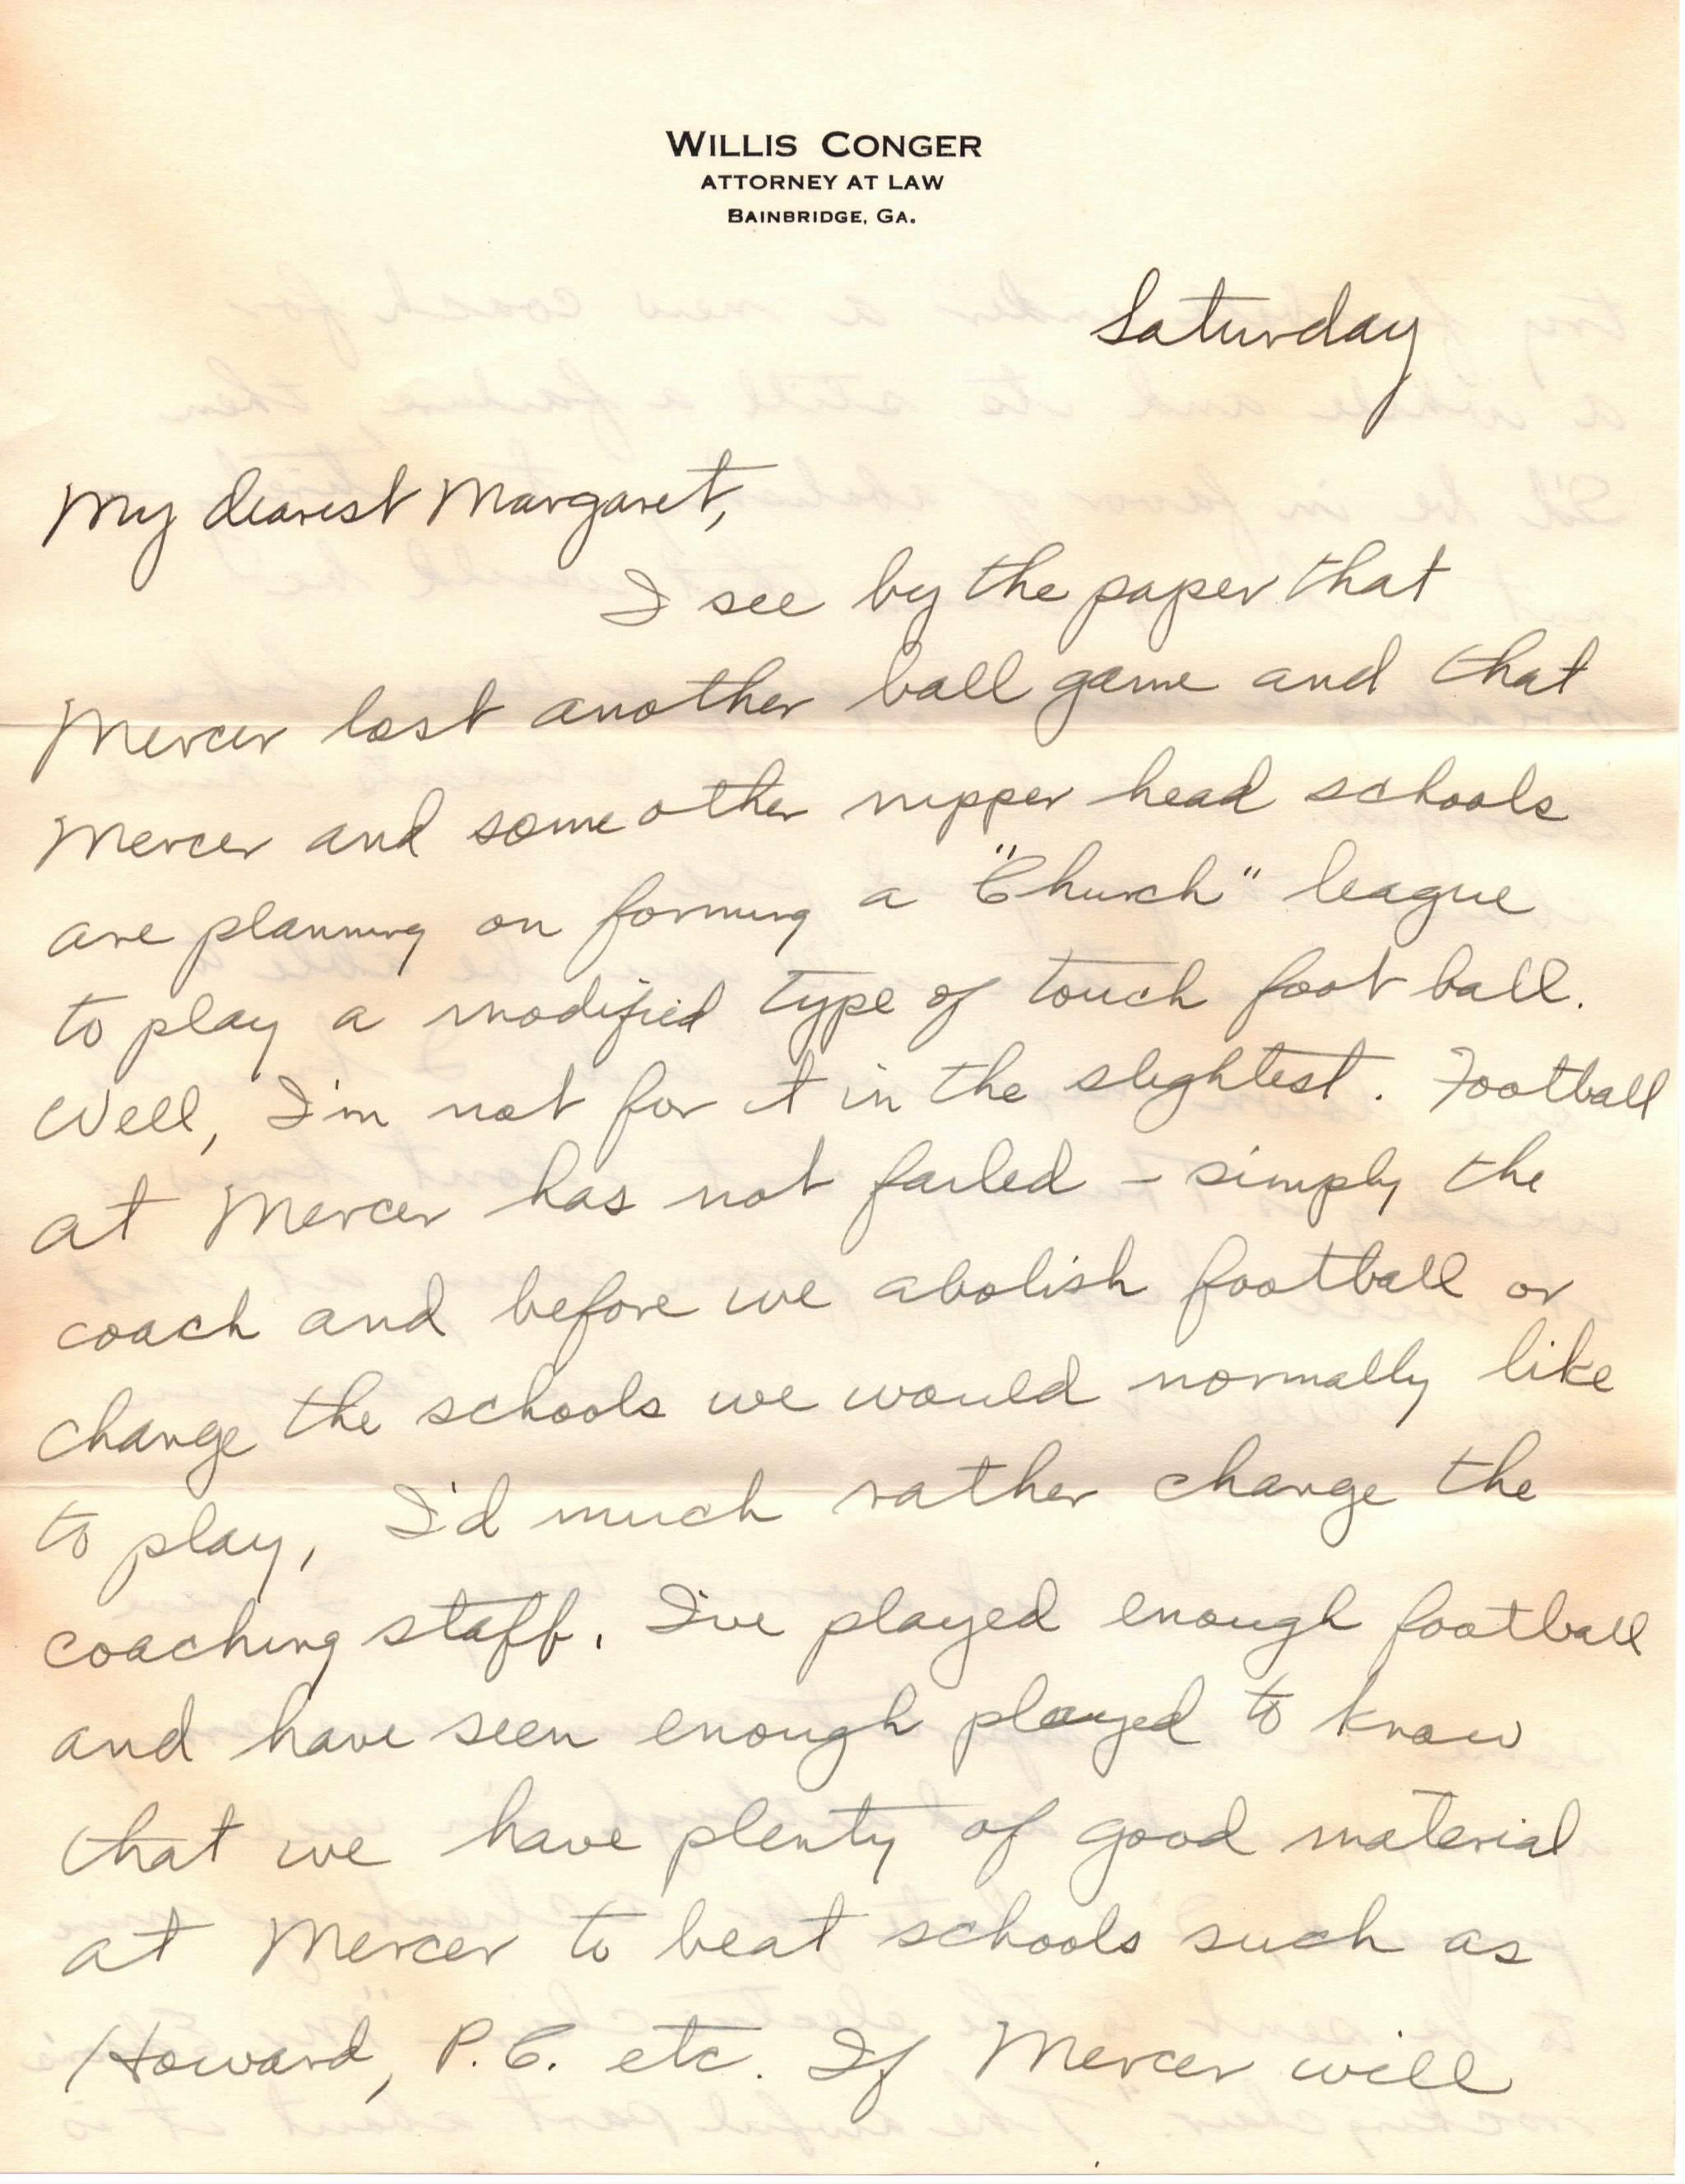 WILLIS CONGER
ATTORNEY AT LAW
BAINBRIDGE, GA.
Saturday
My dearest Margaret,
I see by the paper that
Mercer lost another ball game and that
Mercer and some other nipper head schools
are planning on forming a "Church" league
to play a modified type of touch foot ball.
Well, I'm not for it in the slightest. Football
at Mercer has not failed - simply the
coach and before we abolish football or
change the schools we would normally like
to play, I'd much rather change the
coaching staff. I've played enough football
and have seen enough played to know
that we have plenty of good material
at Mercer to beat schools such as
Howard, P.C. etc. If Mercer will